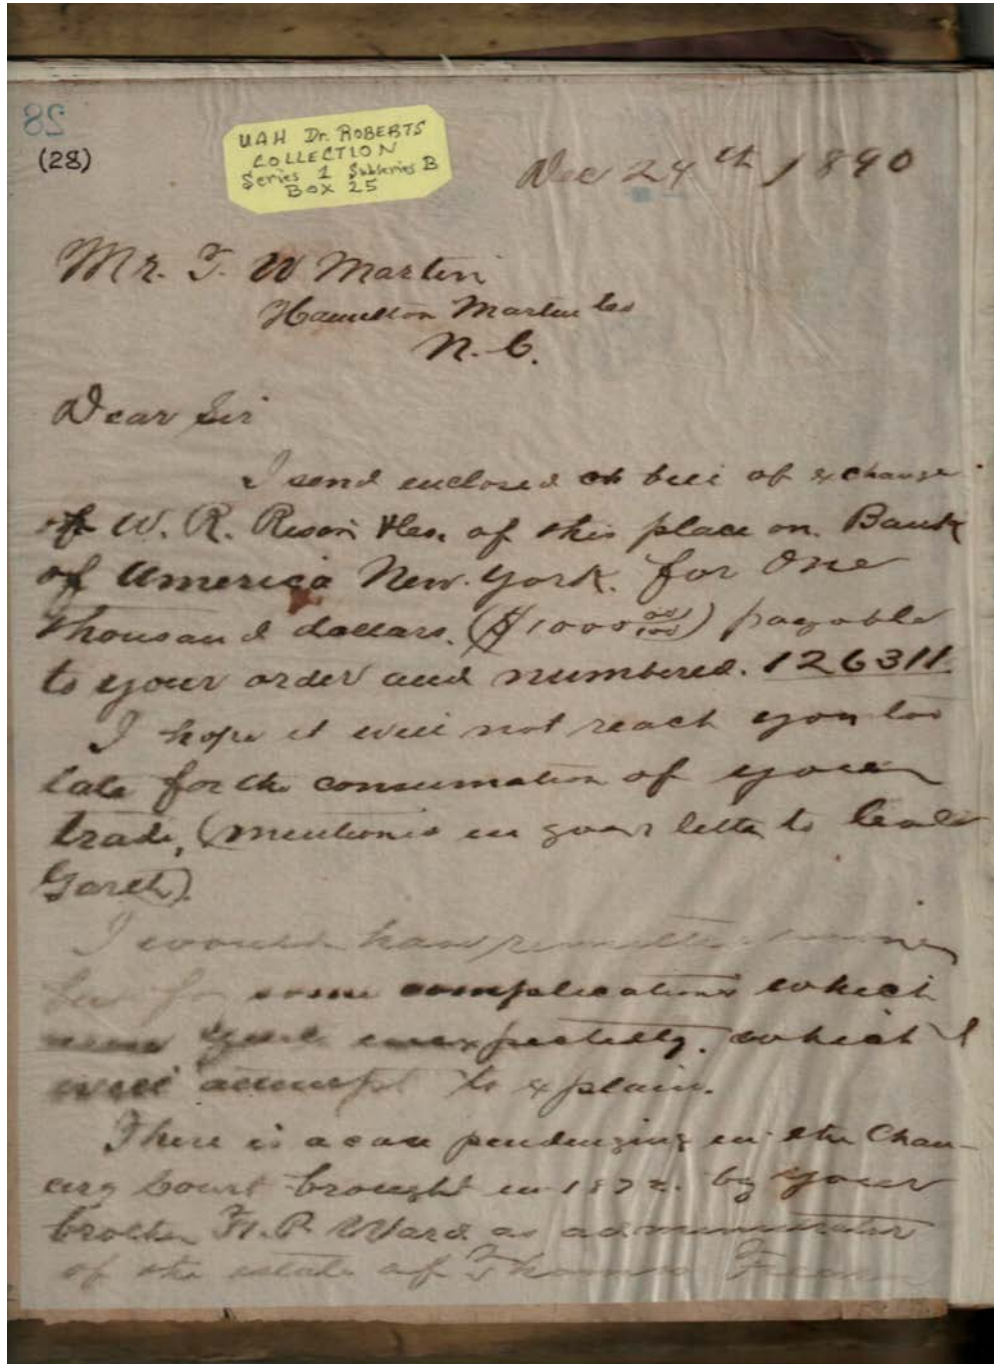 28
(28)
UAH Dr. ROBERTS
COLLECTION
Series 1 Subseries B
BOX 25
Dec 24th 1890
Mr. T. W Martin
Hamilton Martin Co
N. C.
Dear Sir
I send enclosed bill of exchange
of W. R. Rison &Co. of this place on Bank
of America New York. for One
thousand dollars. ($1000 00/100) payable
to your order and numbered. 126311.
I hope it will not reach you too
late for the consumation of your
trade, (mentioned in your letter to
Garth).
I would have
but for some complications which
unexpectedly. which I
will attempt to explain.
There is a case pendinging in the Chan-
cery Court brought in 1872. by your
brother H. P. Ward as administrator
of the estate of Thomas Fearn